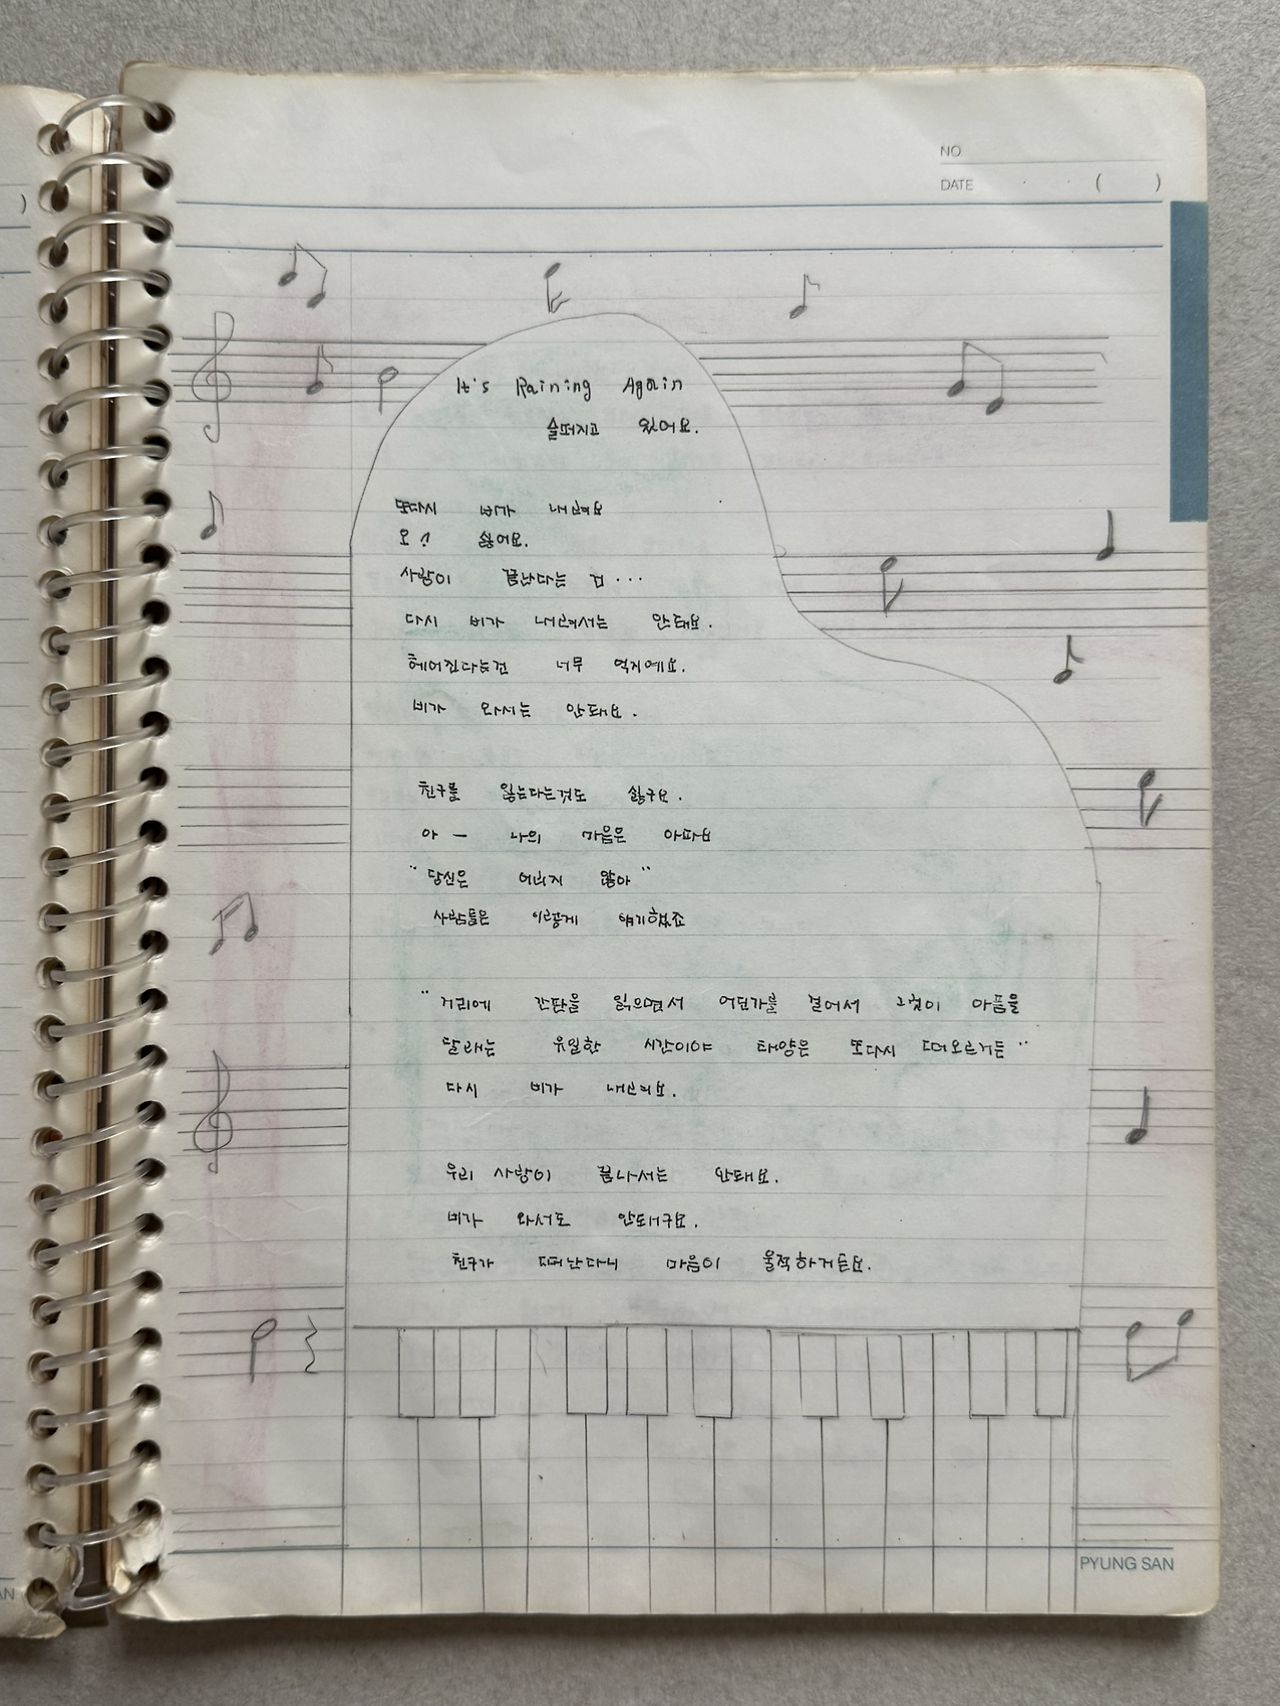 NO.
DATE . . ( )
)
It's Raining Again
슬퍼지고 있어요.
또다시 비가 내려요
오! 싫어요.
사랑이 끝난다는 건...
다시 비가 내려서는 안돼요.
헤어진다는건 너무 억지예요.
비가 와서는 안돼요.
친구를 잃는다는것도 싫구요.
아 — 나의 마음은 아파요
"당신은 어리지 않아"
사람들은 이렇게 얘기했죠
"거리에 간판을 읽으면서 어딘가를 걸어서 그것이 아픔을
달래는 유일한 시간이야 태양은 또다시 떠오르거든"
다시 비가 내려요.
우리 사랑이 끝나서는 안돼요.
비가 와서도 안돼구요.
친구가 떠난다니 마음이 울적하거든요.
PYUNG SAN
AN